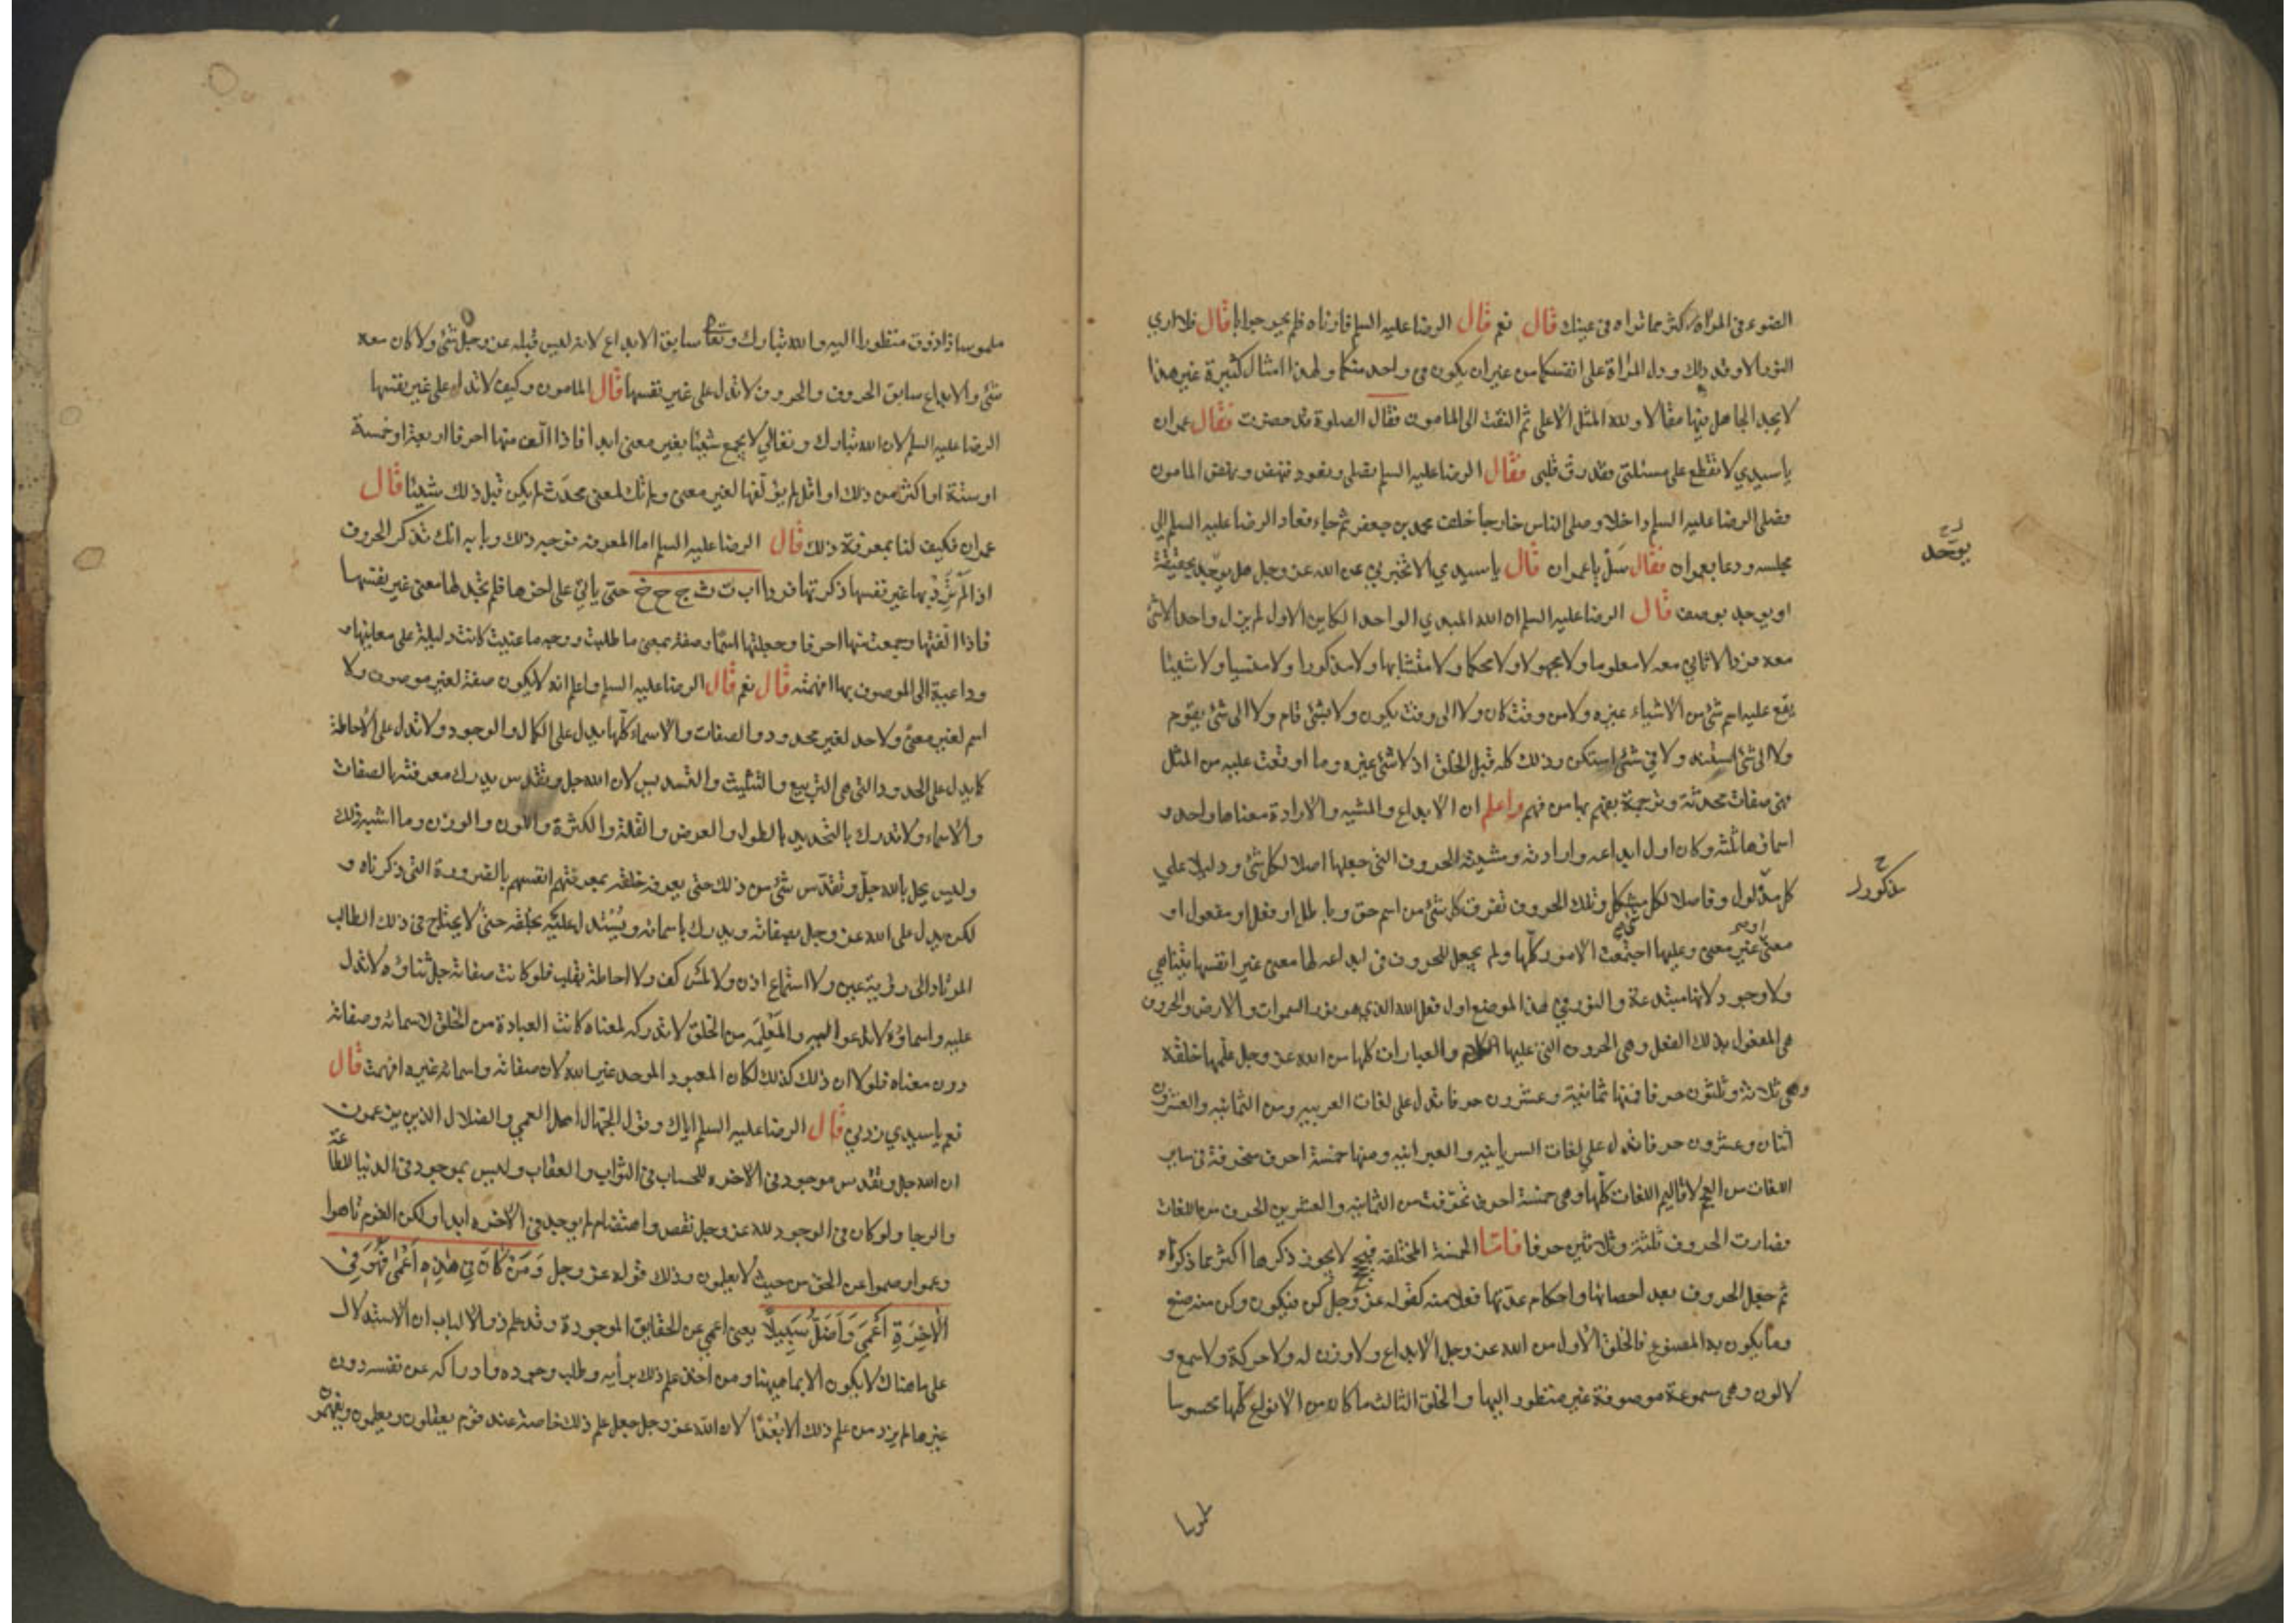 الضوء في المرآة اكثر مما تراه في عينك قال نعم قال الرضا عليه السلم فارناه فلم يحير جوابا قال فلا اري
النور الا وقد دلك ودل المرآة على انفسكما من غير ان يكون في واحد منكما ولهذا امثال كثيرة غير هذا
لا يجد الجاهل فيها مقالا ولله المثل الاعلى ثم التفت الى المامون فقال الصلوة قد حضرت فقال عمران
يا سيدي لا تقطع على مسئلتي فقد رق قلبي فقال الرضا عليه السلم نصلي ونعود فنهض ونهض المامون
فصلى الرضا عليه السلم داخلا وصلى الناس خارجا خلف محمد بن جعفر ثم جاء فعاد الرضا عليه السلم الي
مجلسه ودعا بعمران فقال سل يا عمران قال يا سيدي الا تخبرني عن الله عز وجل هل يوحد بحقيقة
يوحد
او يوحد بوصف قال الرضا عليه السلم ان الله المبدي الواحد الكاين الاول لم يزل واحدا لا شئ
معه فردا لا ثاني معه لا معلوما ولا مجهولا ولا محكما ولا متشابها ولا مذكورا ولا منسيا ولا شيئا
يقع عليه اسم شئ من الاشياء غيره ولا من وقت كان ولا الى وقت يكون ولا بشئ قام ولا الى شئ يقوم
ولا الى شئ استند ولا في شئ استكن وذلك كله قبل الخلق اذ لا شئ غيره وما اوقعت عليه من المثل
فهي صفات محدثة وترجمة يفهم بها من فهم واعلم ان الابداع والمشيه والارادة معناها واحد و
اسماؤها ثلثة وكان اول ابداعه وارادته ومشيته الحروف التي جعلها اصلا لكل شئ ودليلا علي
كل مدلول وفاصلا لكل مشكل وتلك الحروف تفرق كل شئ من اسم حق وباطل او فعل او مفعول او
معنى غير معنى وعليها اجتمعت الامور كلها ولم يجعل للحروف في ابداعه لها معنى غير انفسها يتناهي
ولا وجود لانها مبتدعة والنور في هذا الموضع اول فعل الله الذي هو نور السموات والارض والحروف
هي المفعول بذلك الفعل وهي الحروف التي عليها الكلام والعبارات كلها من الله عز وجل علمها خلقه
وهي ثلاثة وثلثون حرفا فمنها ثمانية وعشرون حرفا تدل على لغات العربيه ومن الثمانيه والعشرون
اثنان وعشرون حرفا تدل علي لغات السريانيه والعبرانيه ومنها خمسة احرف متحرفة في ساير
اللغات من العجم لاقاليم اللغات كلها وهي خمسة احرف تحرفت من الثمانيه والعشرين الحرف من اللغات
فصارت الحروف ثلثة وثلاثين حرفا فاما الخمسة المختلفه لا يجوز ذكرها اكثر مما ذكرناه
ثم جعل الحروف بعد احصائها واحكام عدتها فعلا منه كقوله عز وجل كن فيكون وكن منه صنع
وما يكون به المصنوع فالخلق الاول من الله عز وجل الابداع ولا وزن له ولا حركة ولا سمع و
لا لون وهي مسموعة موصوفة غير منظور اليها والخلق الثالث ما كان من الانواع كلها محسوسا
ملموسا
ملموسا ذا ذوق منظورا اليه والله تبارك وتعا سابق الابداع لانه ليس قبله عز وجل شئ ولا كان معه
شئ والابداع سابق الحروف والحروف لا تدل على غير نفسها قال المامون وكيف لا تدل على غير نفسها
الرضا عليه السلم لان الله تبارك وتعالي لا يجمع شيئا بغير معنى ابدا فاذا الف منها احرفا اربعة او خمسة
او ستة او اكثر من ذلك او اقل لم يؤلفها لغير معنى ولم تك لمعنى محدث لم يكن قبل ذلك شيئا قال
عمران فكيف لنا بمعرفة ذلك قال الرضا عليه السلم اما المعرفه فوجه ذلك وبابه انك تذكر الحروف
اذا لم ترد بها غير نفسها ذكرتها فردا ا ب ت ث ج ح خ حتى ياتي على اخرها فلم تجد لها معنى غير نفسها
فاذا الفتها وجمعت منها احرفا وجعلتها اسما وصفة بمعنى ما طلبت ووجه ما عنيت كانت دليلة على معانيها
وداعية الى الموصوف بها افهمته قال نعم قال الرضا عليه السلم واعلم انه لا يكون صفة لغير موصوف ولا
اسم لغير معنى ولا حد لغير محدود والصفات والاسماء كلها يدل على الكمال والوجود ولا تدل على الاحاطة
كما يدل على الحدود التي هي التربيع والتثليث والتسديس لان الله جل وتقدس يدرك معرفته بالصفات
والاسماء ولا تدرك بالتحديد بالطول والعرض والقلة والكثرة واللون والوزن وما اشبه ذلك
وليس يحل بالله جل وتقدس شئ من ذلك حتى يعرفه خلقه بمعرفتهم انفسهم بالضرورة التي ذكرناه و
لكن يدل على الله عز وجل بصفاته ويدرك باسمائه ويستدل عليه بخلقه حتى لا يحتاج في ذلك الطالب
المرتاد الى رؤية عين ولا استماع اذن ولا لمس كف ولا احاطة بقلب فلو كانت صفاته جل ثناؤه لا تدل
عليه واسماؤه لا تدعو اليه والمعلمه من الخلق لا تدركه لمعناه كانت العبادة من الخلق لاسمائه وصفاته
دون معناه فلولا ان ذلك كذلك لكان المعبود الموحد غير الله لان صفاته واسمائه غيره افهمت قال
نعم يا سيدي زدني قال الرضا عليه السلم اياك وقول الجهال اهل العمي والضلال الذين يزعمون
ان الله جل وتقدس موجود في الاخره للحساب في الثواب والعقاب وليس بموجود في الدنيا للطاعة
والرجا ولو كان في الوجود لله عز وجل نقص واهتضام لم يوجد في الاخره ابدا ولكن القوم تاهوا
وعموا وصموا عن الحق من حيث لا يعلمون وذلك قوله عز وجل وَمَنْ كَانَ فِي هٰذِهِ أَعْمٰى فَهُوَ فِي
الْآخِرَةِ أَعْمَى وَأَضَلُّ سَبِيلًا يعني اعمي عن الحقايق الموجودة وقد علم ذو الالباب ان الاستدلال
على ما هناك لا يكون الا بما هيهنا ومن اخذ علم ذلك برأيه وطلب وجوده وادراكه عن نفسه دون
غيرها لم يزد من علم ذلك الا بعدا لان الله عز وجل جعل علم ذلك خاصة عند قوم يعقلون ويعلمون ويفهمون